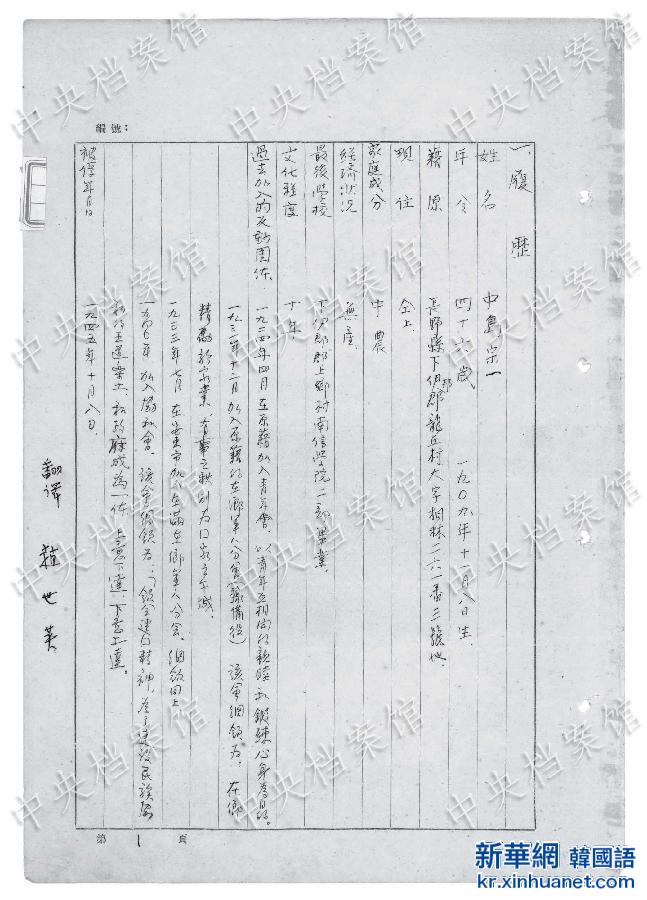 編號:
一. 履歷
姓名 中島宗一
年令 四十六歲 一九〇九年十一月八日生.
籍原 長野縣下伊那郡龍丘村大字桐林二六一番三號地.
現住 仝上.
家庭成分 中農
經濟狀況 無產.
最後學校 下伊那郡上鄉村南信學院二部畢業.
文化程度 十年
過去加入的反動團体. 一九二四年四月在原藉加入青年會.以青年互相間的親睦和鍛練心身為目的.
一九三一年十二月加入原藉的在鄉軍人分會(豫備役) 該會綱領為:在鄉
精勵於家業,有事之秋則為國家之干城.
一九三三年七月在安東市加入在滿在鄉軍人分会.綱領同上
年加入協和會.該會綱領為:「領會建國精神,為了建設民族協
和的王道樂土,和政府成為一体,上意下達,下意上達。
被俘年月日 一九四五年十月八日
翻譯 趙世英
第 1 頁
中央档案馆
新華網 韓國語
kr.xinhuanet.com